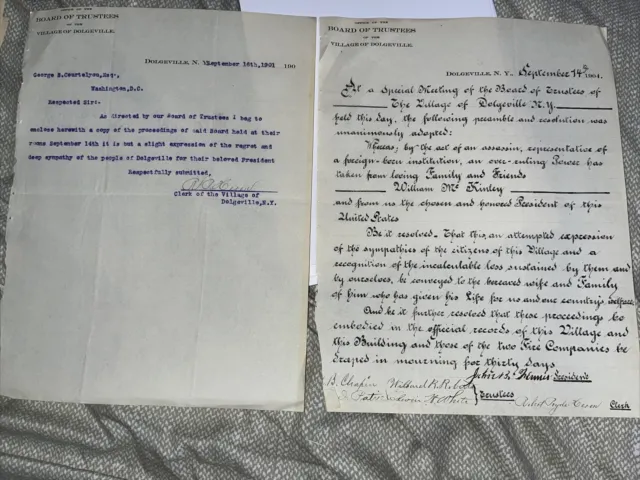 OFFICE OF THE
BOARD OF TRUSTEES
OF THE
VILLAGE OF DOLGEVILLE.
DOLGEVILLE, N. Y. September 16th, 1901 190
George B. Courtelyou, Esq.,
Washington, D.C.
Respected Sir:
As directed by our Board of Trustees I beg to
enclose herewith a copy of the proceedings of said Board held at their
rooms September 14th it is but a slight expression of the regret and
deep sympathy of the people of Dolgeville for their beloved President
Respectfully submitted,
Clerk of the Village of
Dolgeville, N.Y.
OFFICE OF THE
BOARD OF TRUSTEES
OF THE
VILLAGE OF DOLGEVILLE.
DOLGEVILLE, N. Y., September 14th 1901.
At a Special Meeting of the Board of Trustees of
The Village of Dolgeville N.Y.
held this day, the following preamble and resolution was
unanimously adopted:
Whereas; by the act of an assassin, representative of
a foreign-born institution, an over-ruling Power has
taken from loving Family and Friends
William McKinley
and from us the chosen and honored President of this
United States
Be it resolved. That this, an attempted expression
of the sympathies of the citizens of this Village and a
recognition of the incalculable loss sustained by them and
by ourselves, be conveyed to the bereaved wife and Family
of him who has given his Life for us and our country's welfare.
And be it further resolved that these proceedings be
embodied in the official records of this Village and
this Building and those of the two Fire Companies be
draped in mourning for thirty days
President
B. Chapin
Trustees
White
Clerk